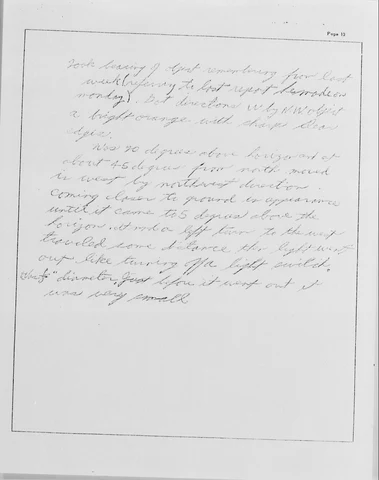 Page 13
Took bearing of object remembering from last
week (refering to last report he made on
monday). Got directions W by N.W object
a bright orange with sharp clear
edges.
Was 20 degrees above horizon and at
about 45 degrees from north moved
to west by northwest direction.
coming closer to ground in appearance
until it came to 5 degrees above the
horizon. It made a left turn to the west
traveled some distance the light went
out like turning off a light switch.
Was " diameter. Just before it went out it
was very small